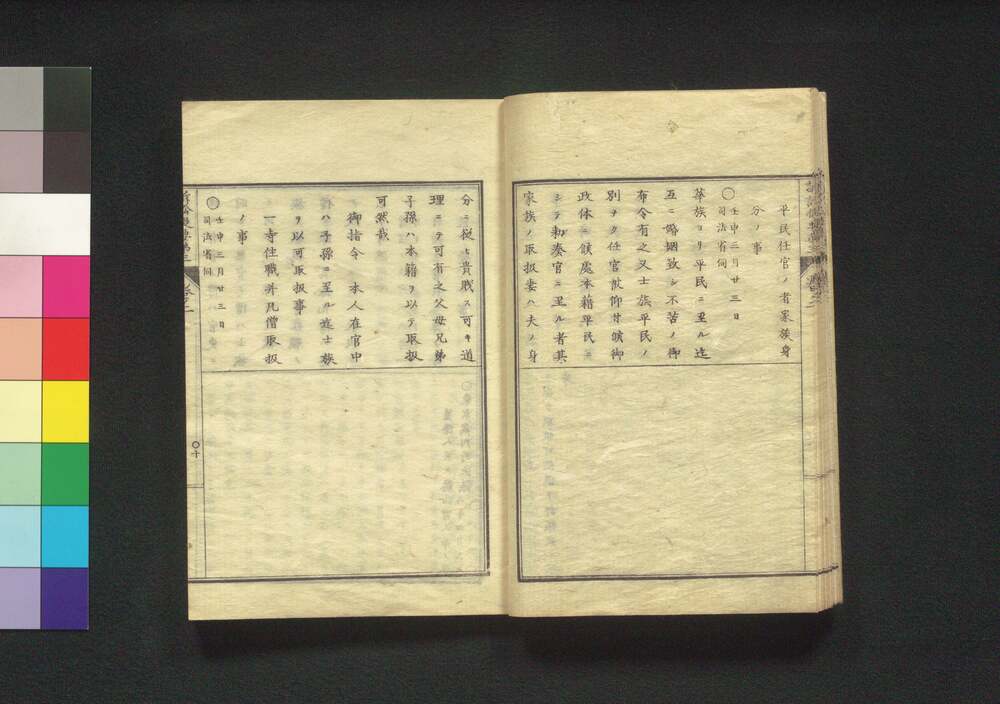 平民任官ノ者家族身
分ノ事
◯壬申三月廿三日
司法省伺
華族ヨリ平民ニ至ル迄
互ニ婚姻致シ不苦ノ御
布令有之又士族平民ノ
別ヲク任官被仰付候御
政体ニ候處本籍平民ニ
シテ勅奏官ニ至ル者其
家族ノ取扱妻ハ夫ノ身
分ニ従ヒ貴賎ス可キ道
理ニテ可有之父母兄弟
子孫ハ本籍ヲ以テ取扱
可然哉
御指令 本人在官中
ハ子孫ニ至ル迄士族
ヲ以可取扱事
一寺住職并凡僧取扱
ノ事
◯壬申三月廿三日
司法省伺
◯十